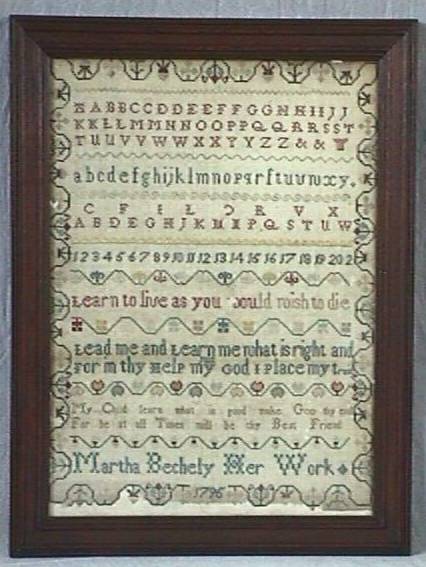 A A B B C C D D E E F F G G H H I I J J
K K L L M M N N O O P P Q Q R R S S T
T U U V V W W X X Y Y Z Z & &
a b c d e f g h i j k l m n o p q r ſ t u v w x y .
C F I L R V X
A B D E G H J K M P Q S T U W
1 2 3 4 5 6 7 8 9 10 11 12 13 14 15 16 17 18 19 20 2
Learn to live as you would wish to die
Lead me and Learn me what is right and
For in thy Help my God I place my
My Child learn what is good make God thy
For he at all Times will be thy Best Friend
Martha Bechely Her Work
1796